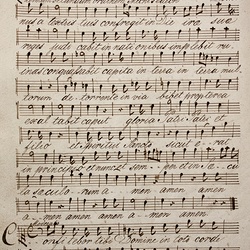 nus a dextris tuis confregit in Die irae suae
reges judicabit in nationibus implebit ru,
inas conquassabit capita in terra in terra mul,
torum de torrente in via bibet propterea
exaltabit caput gloria Patri Patri et
filio et Spiritui Sancto sicut erat
in principio et nunc et semper et in Sae cu,
la saeculorum amen amen amen
amen amen amen amen amen
Confitebor tibi Domine in toto corde